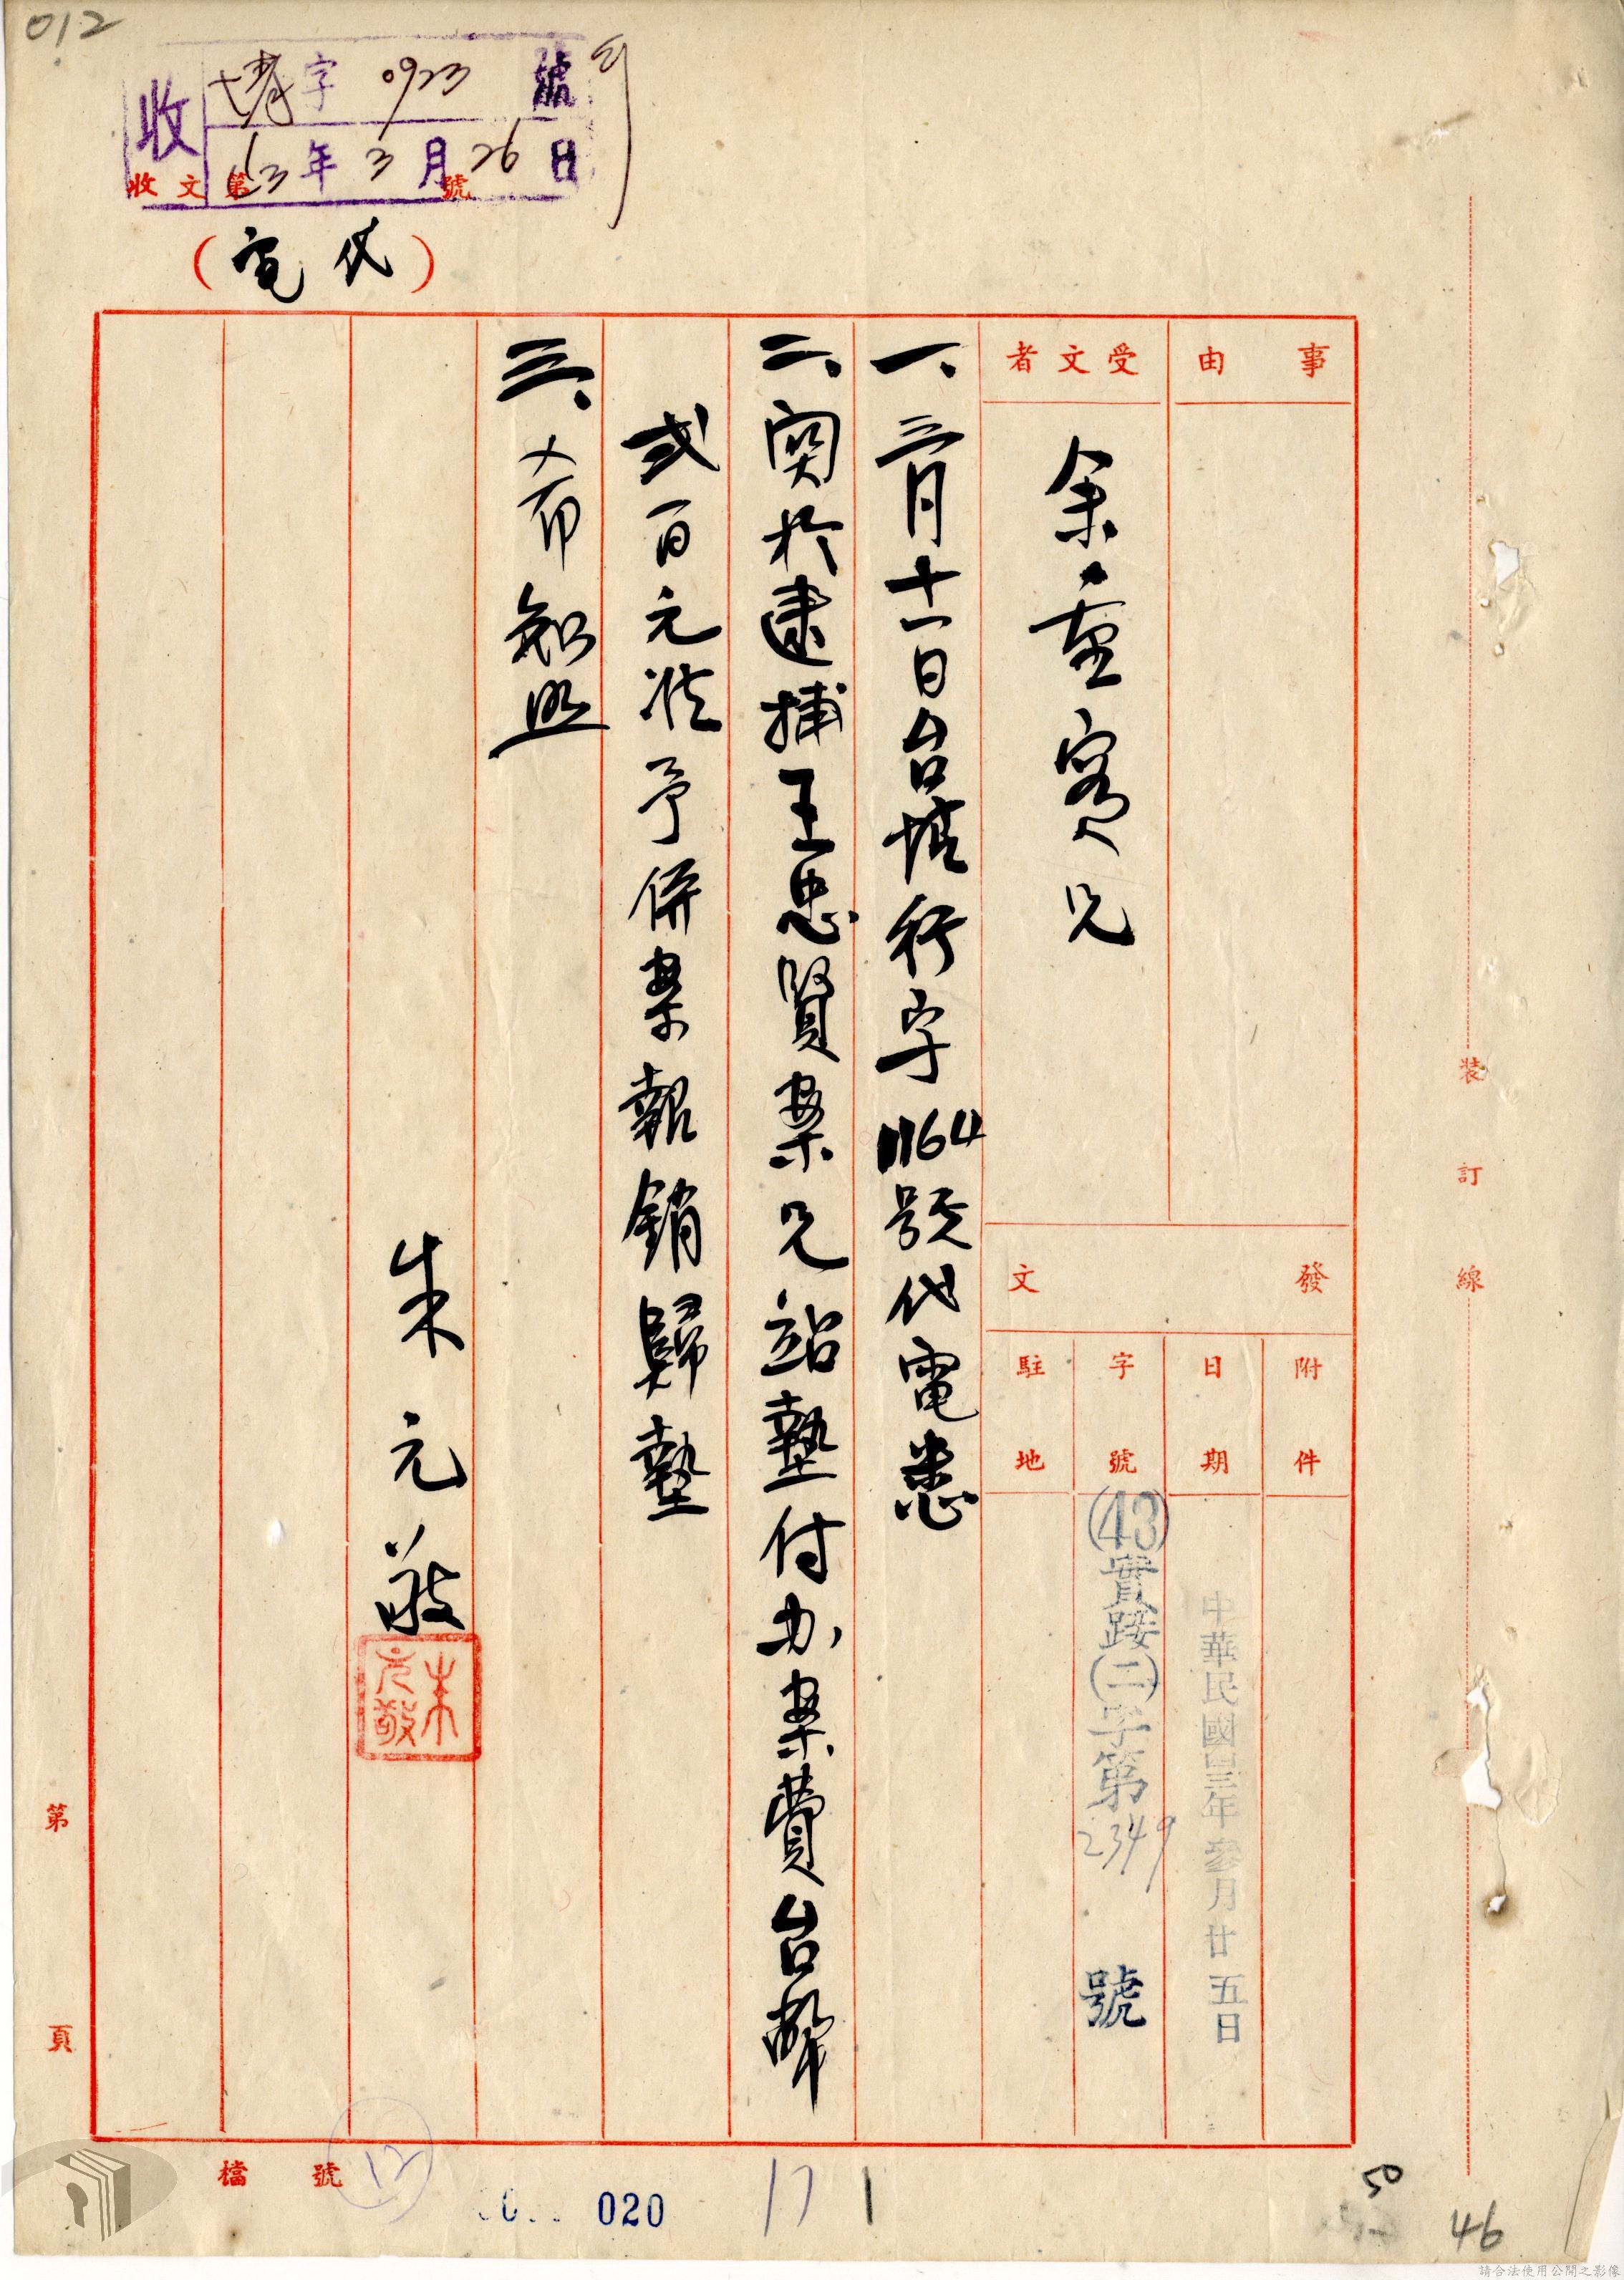 012
收 字 0923 號
43年3月26日
收文第 號
(代電)
事由
受文者
余重實兄
發文
附件
日期
字號
駐地
中華民國四三年參月廿五日
(43)實踐(二)字第2349號
一、三月十一日台填行字1164號代電悉
二、関於逮捕王忠賢案兄站墊付办案費台幣
弍百元准予併案報銷歸墊
三、希知照
朱元敬
朱元敬
裝訂線
第 頁
檔號
12
020
171
50
46
請合法使用公開之影像